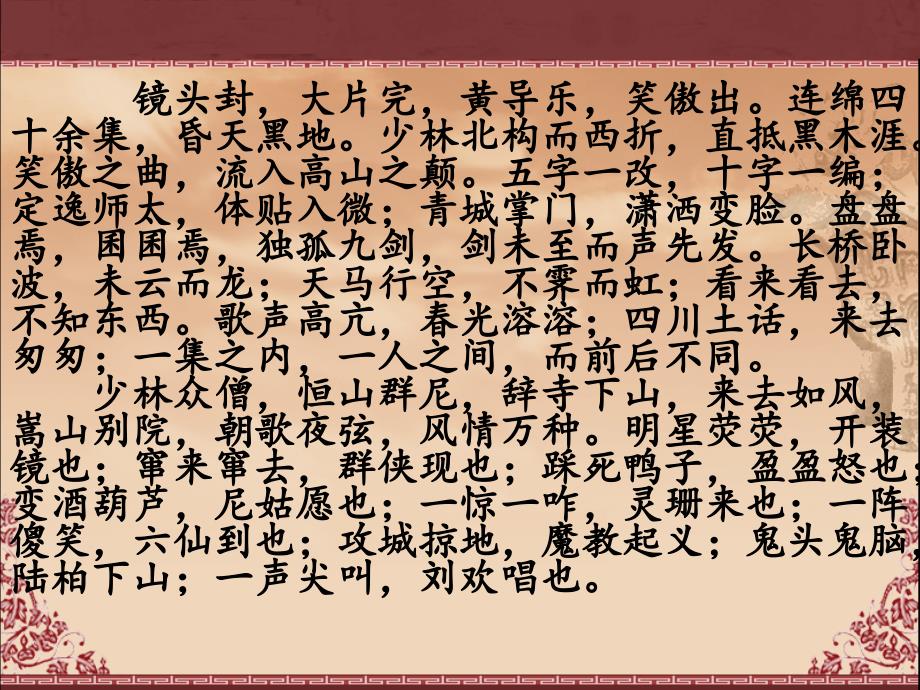 镜头封，大片完，黄导乐，笑傲出。连绵四
十余集，昏天黑地。少林北构而西折，直抵黑木涯。
笑傲之曲，流入高山之颠。五字一改，十字一编；
定逸师太，体贴入微；青城掌门，潇洒变脸。盘盘
焉，困困焉，独孤九剑，剑未至而声先发。长桥卧
波，未云而龙；天马行空，不霁而虹；看来看去，
不知东西。歌声高亢，春光溶溶；四川土话，来去
匆匆；一集之内，一人之间，而前后不同。
少林众僧，恒山群尼，辞寺下山，来去如风，
嵩山别院，朝歌夜弦，风情万种。明星荧荧，开装
镜也；窜来窜去，群侠现也；踩死鸭子，盈盈怒也，
变酒葫芦，尼姑愿也；一惊一咋，灵珊来也；一阵
傻笑，六仙到也；攻城掠地，魔教起义；鬼头鬼脑，
陆柏下山；一声尖叫，刘欢唱也。